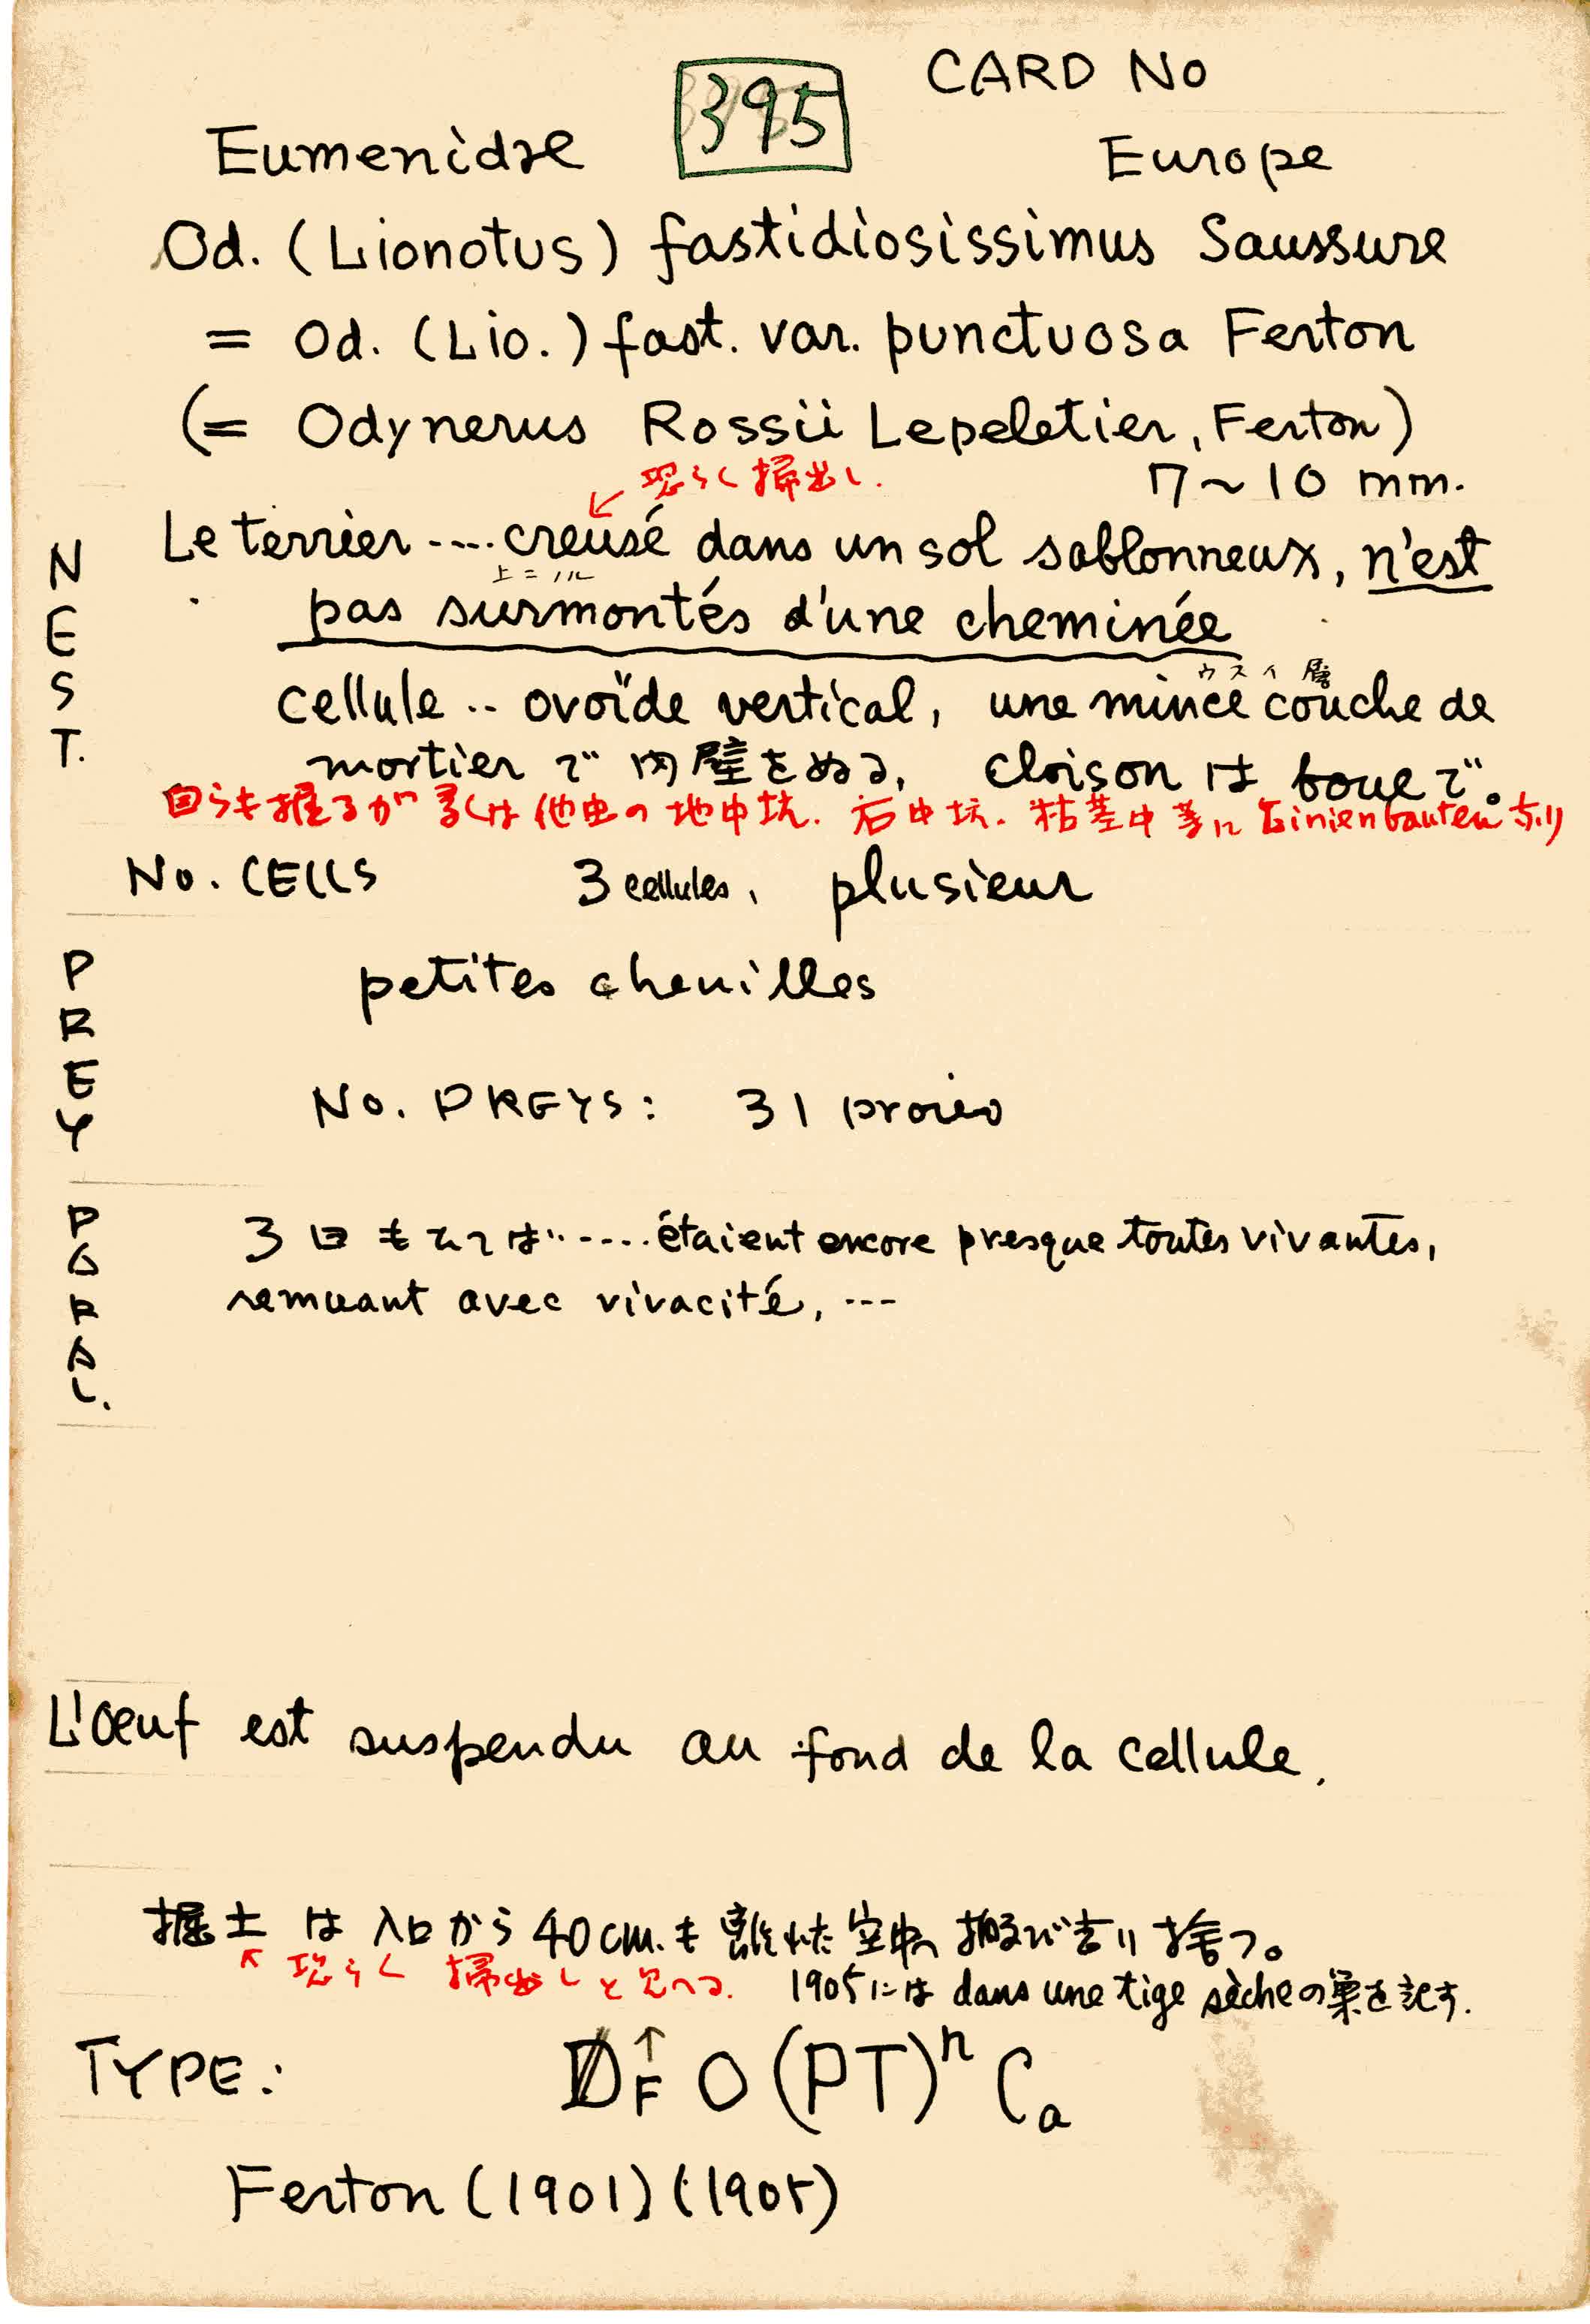 CARD No
395
Eumenidae Europe
Od. (Lionotus) fastidiosissimus Saussure
= Od. (Lio.) fast. var. punctuosa Ferton
(= Odynerus Rossii Lepeletier, Ferton)
恐らく掃出し.
7~10 mm.
NEST.
Le terrier ---- creusé dans un sol sablonneux, n'est
pas surmontés d'une cheminée
ウスイ層
cellule .. ovoïde vertical, une mince couche de
mortier で内壁をぬる, cloison は boue で。
自らも掘るが多くは他虫の地中坑. 石中坑. 枯茎中等に Linienbauten 
No. CELLS 3 cellules, plusieur
PREY
petites chenilles
No. PREYS: 31 proies
PARAL.
3日もたてば ..... étaient encore presque toutes vivantes,
remuant avec vivacité, ---
L'oeuf est suspendu au fond de la cellule.
掘土は入口から40cm.も離れた空中へ運び去り捨つ。
恐らく掃出しと見へる.
1905には dans une tige sèche の巣を記す.
TYPE: D F↑ O (PT)ⁿ Ca
Ferton (1901) (1905)